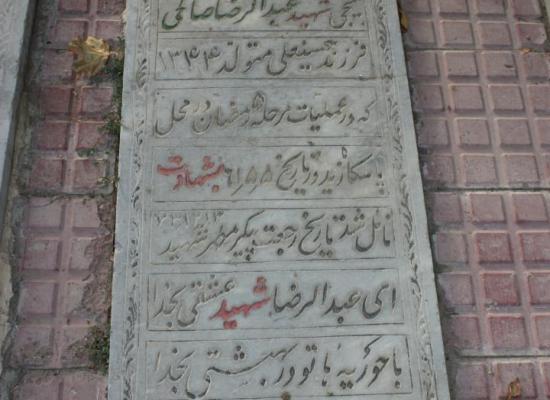 بسیجی شهید عبدالرضا صالحی
فرزند حسینعلی متولد ۱۳۴۴
که در عملیات مرحله ۵ رمضان در محل
پاسگاه زید در تاریخ ۶۱٫۵٫۵ بشهادت
نائل شد تاریخ رجعت پیکر مطهر شهید
ای عبدالرضا شهید عشقی بخدا
با حوریه ها تو در بهشتی بخدا